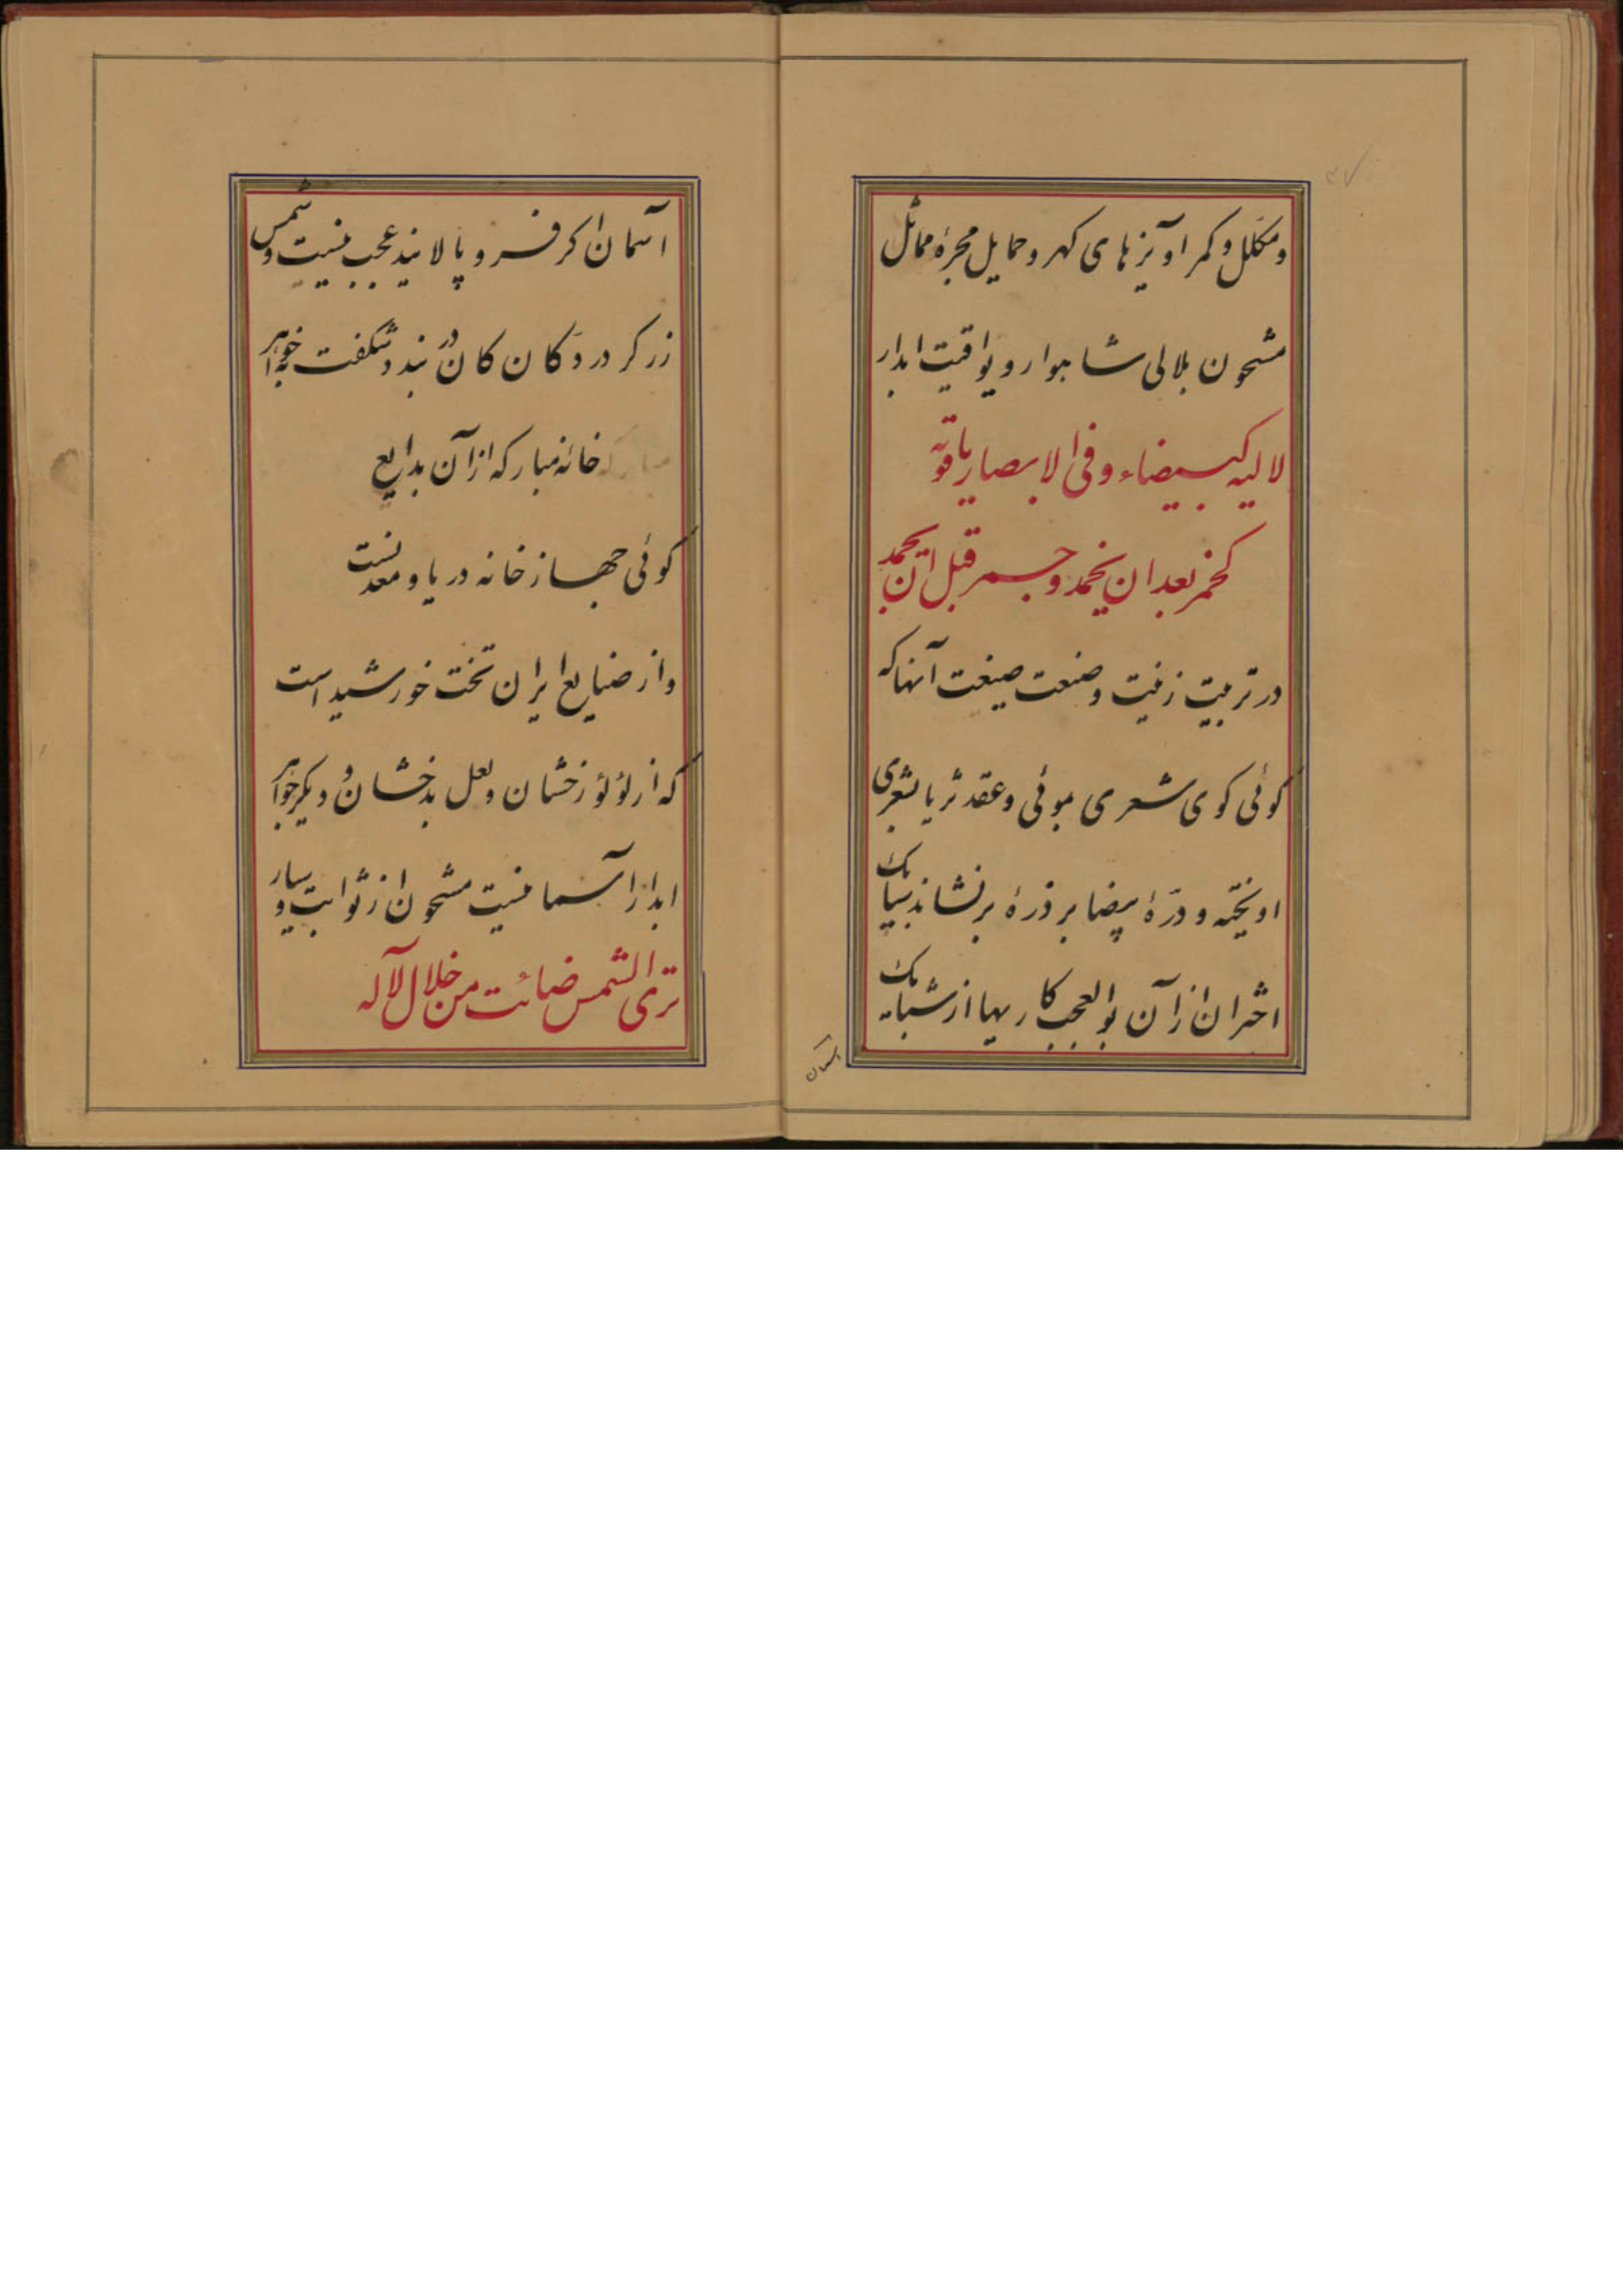 ۳۷
و مکلل و کمر اویزهای کهر و حمایل مجرهٔ مماثل
مشحون بلالی شاهوار و یواقیت ابدار
لالیه کبیضاء و فی الابصار یاقوته
کخمر بعد ان یخمد و جمر قبل ان یخمد
در تربیت زینت و صنعت صیغت آنها که
کوئی کوی شعری بموئی و عقد ثریا بشعری
اویخته و درّهٔ بیضا بر ذرهٔ برنشاند سبایک
اختران از آن بوالعجب کاریها از شبایک
اسمان
اسمان اکر فرو پالایند عجب نیست و شمس
زرکر در دکان کان در بندد شکفت جواهر
خانهٔ مبارکه از آن بدایع
کوئی جهاز خانه دریا و معدنست
و از صنایع ایران تخت خورشید است
که از لؤلؤ رخشان و لعل بدخشان و دیکر جواهر
ابدار آسمانیست مشحون از ثوابت و سیار
تری الشمس ضائت من خلال لآله